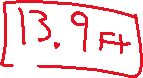 13.9 Ft